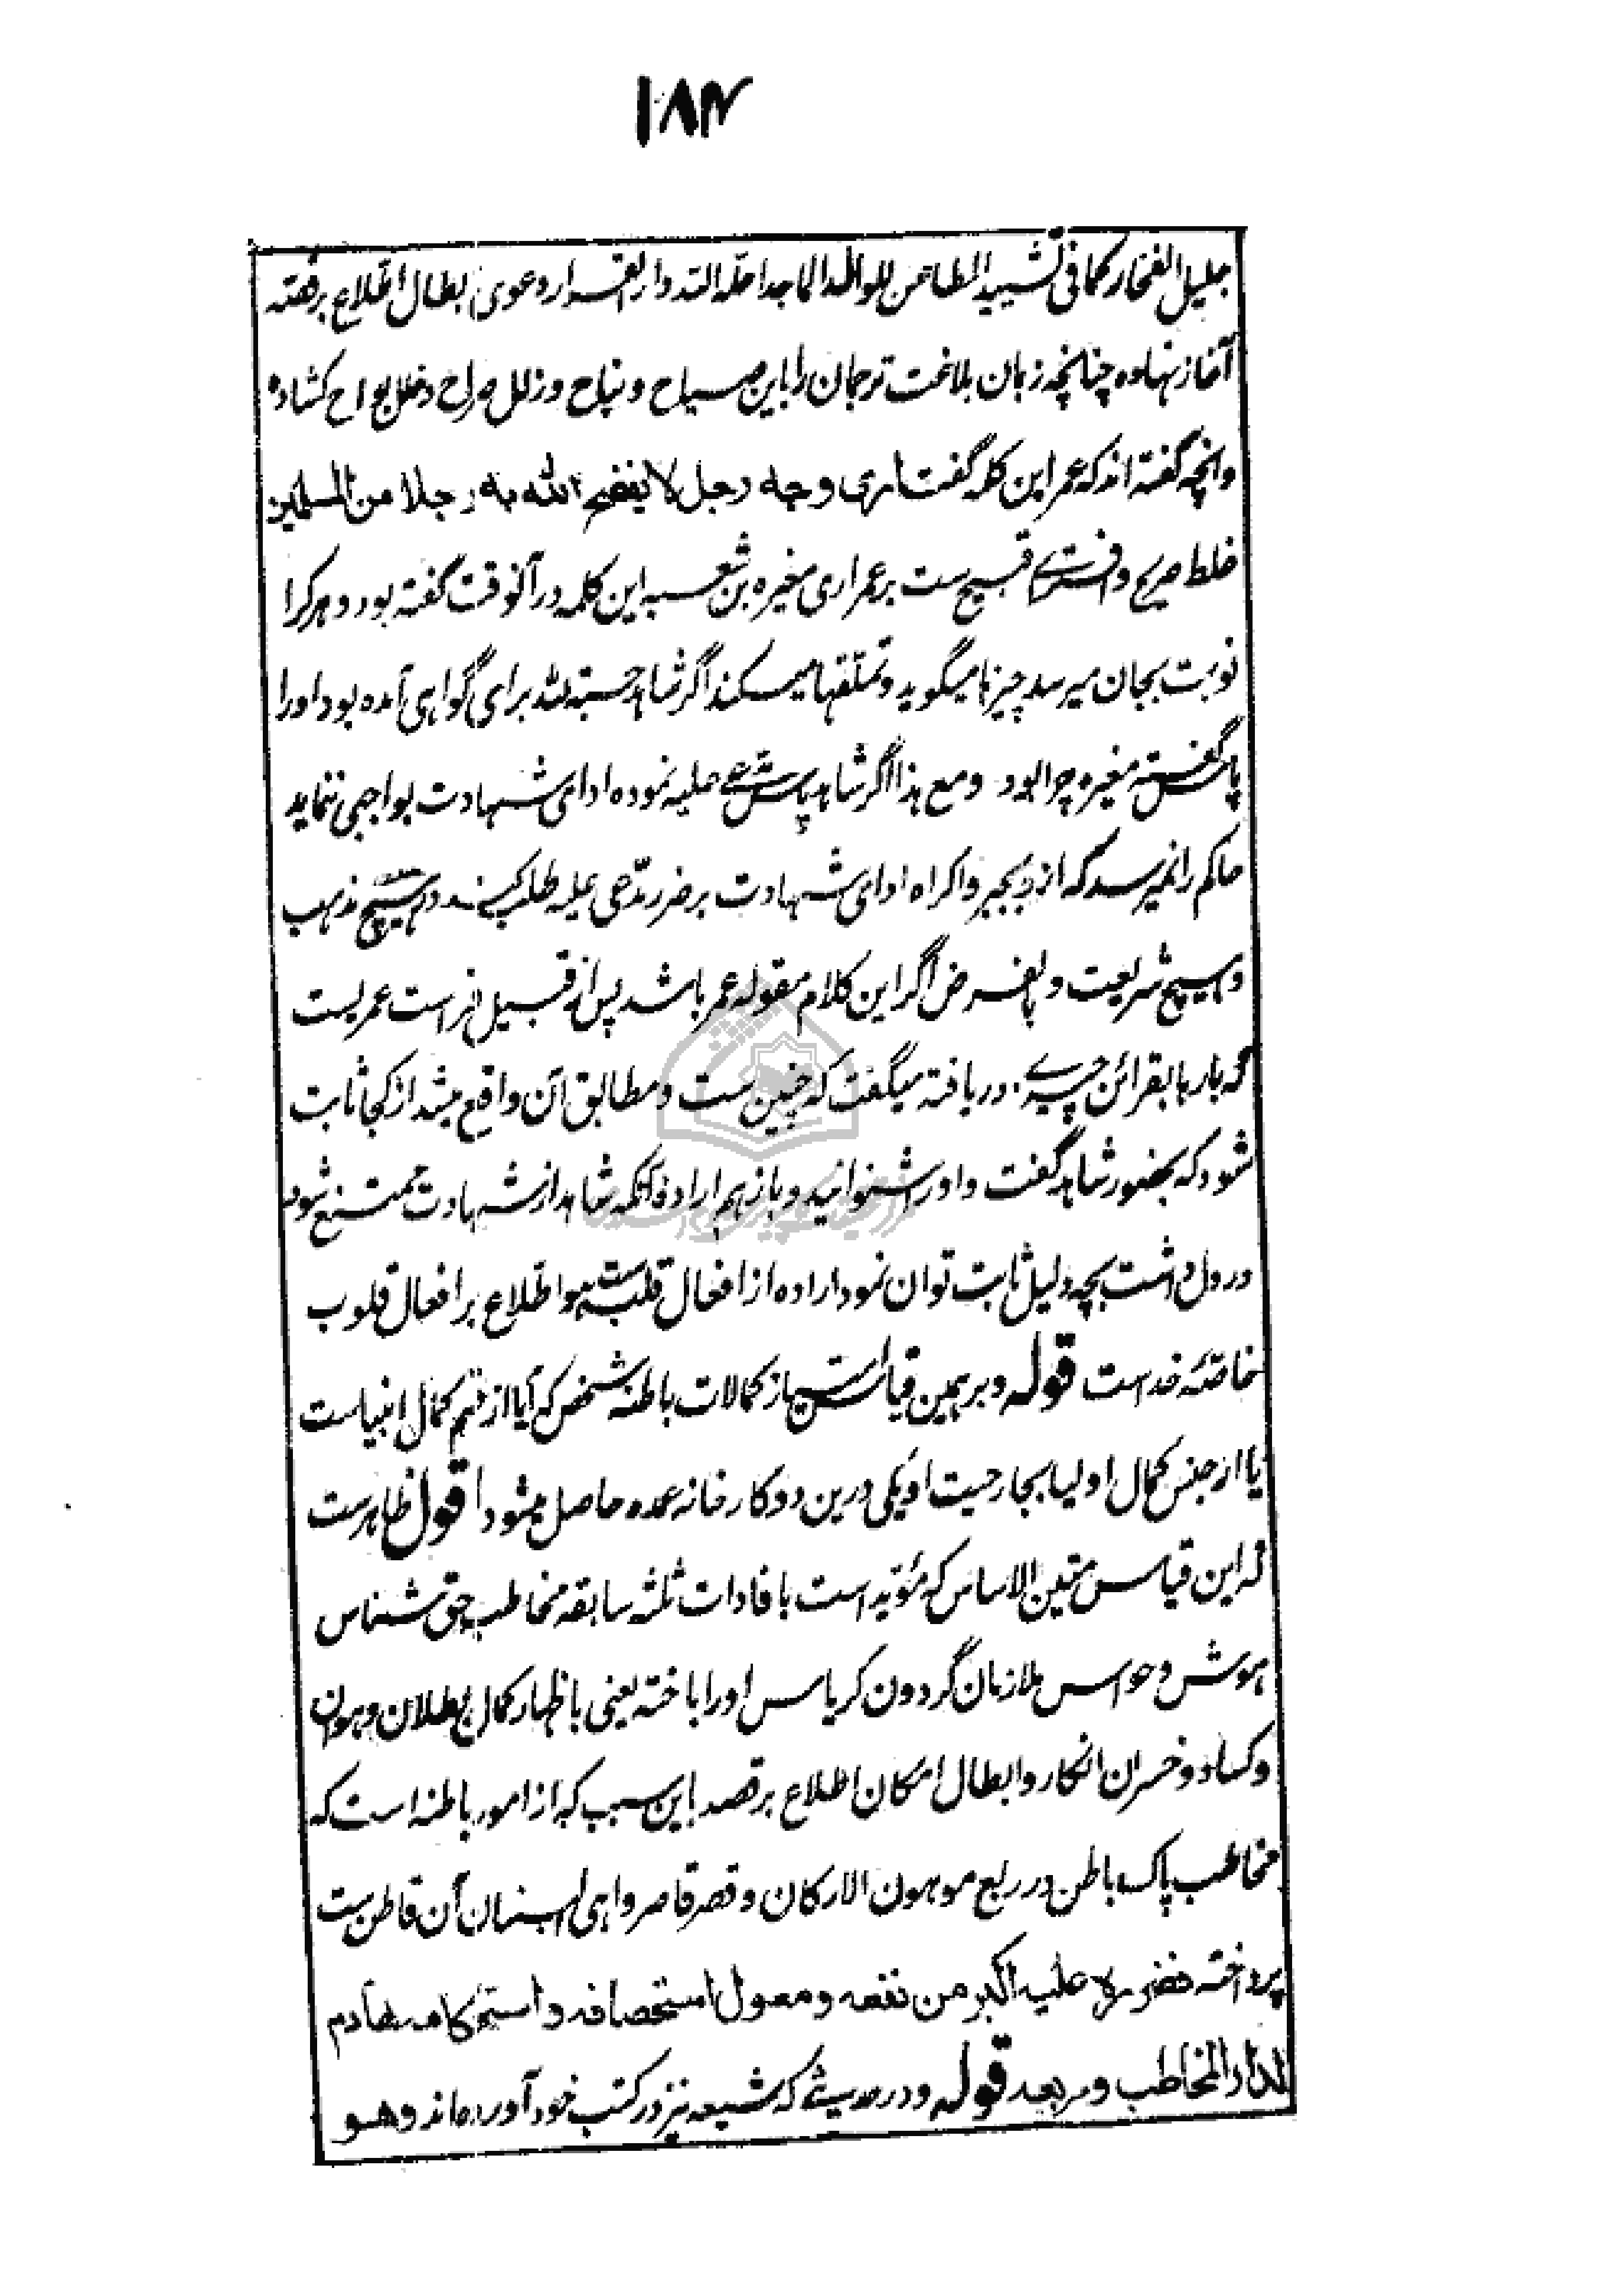 ۱۸۳
جلیل الفخار کما فی تشیید المطاعن للوالد الماجد احله الله دار القرار و دعوی ابطال اطلاع بر
آغاز نهاده چنانچه زبان بلاغت ترجمان را باین صیاح و نیاح و زلل صراح و خلل بواح کشاده
وانچه گفته اند که عمر این کلمه گفت اری وجه رجل لا یفضح الله به رجلا من المسلمین
غلط صریح و افترای قبیح ست بر عمر اری مغیره بن شعبه این کلمه در آنوقت گفته بود و هر کرا
نوبت بجان میرسد چیزها میگوید و تملقها میکند اگر شاهد حسبة لله برای گواهی آمده بود اورا
پاس گفته مغیره چرا بود و مع هذا اگر شاهد پاس مدعی علیه نموده ادای شهادت بواجبی ننماید
حاکم را نمیرسد که ازو بجبر و اکراه ادای شهادت بر ضرر مدعی علیه طلب کند در هیچ مذهب
و هیچ شریعت و بالفرض اگر این کلام مقوله عمر باشد پس از قبیل فراست عمریست
که بارها بقرائن چیزی دریافته میگفت که چنین ست و مطابق آن واقع میشد از کجا ثابت
شود که بحضور شاهد گفت و اورا شنوانید و باز هم اراده آنکه شاهد از شهادت ممتنع شود
در دل داشت بچه دلیل ثابت توان نمود اراده از افعال قلب ست و اطلاع بر افعال قلوب
خاصئه خداست قوله و بر همین قیاس ست از کمالات باطنه شخص که آیا از قسم کمال انبیاست
یا از جنس کمال اولیا بجارحیت او یکی درین دو کارخانه عمده حاصل میشود اقول ظاهرست
که این قیاس متین الاساس که مؤید است بافادات ثلثه سابقه مخاطب حق شناس
هوش و حواس ملازمان گردون کریاس اورا باخته یعنی باظهار کمال بطلان و هوان
و کساد و خسران انکار و ابطال امکان اطلاع بر قصد باین سبب که از امور باطنه است که
مخاطب پاک باطن در ربع موهون الارکان و قصر قاصر واهی البنیان آن قاطن ست
پرداخته فضرره علیه اکبر من نفعه و معول استحصافه و استحکامه هادم
لدار المخاطب و ربعه قوله و در حدیثی که شیعه نیز در کتب خود آورده اند و هو